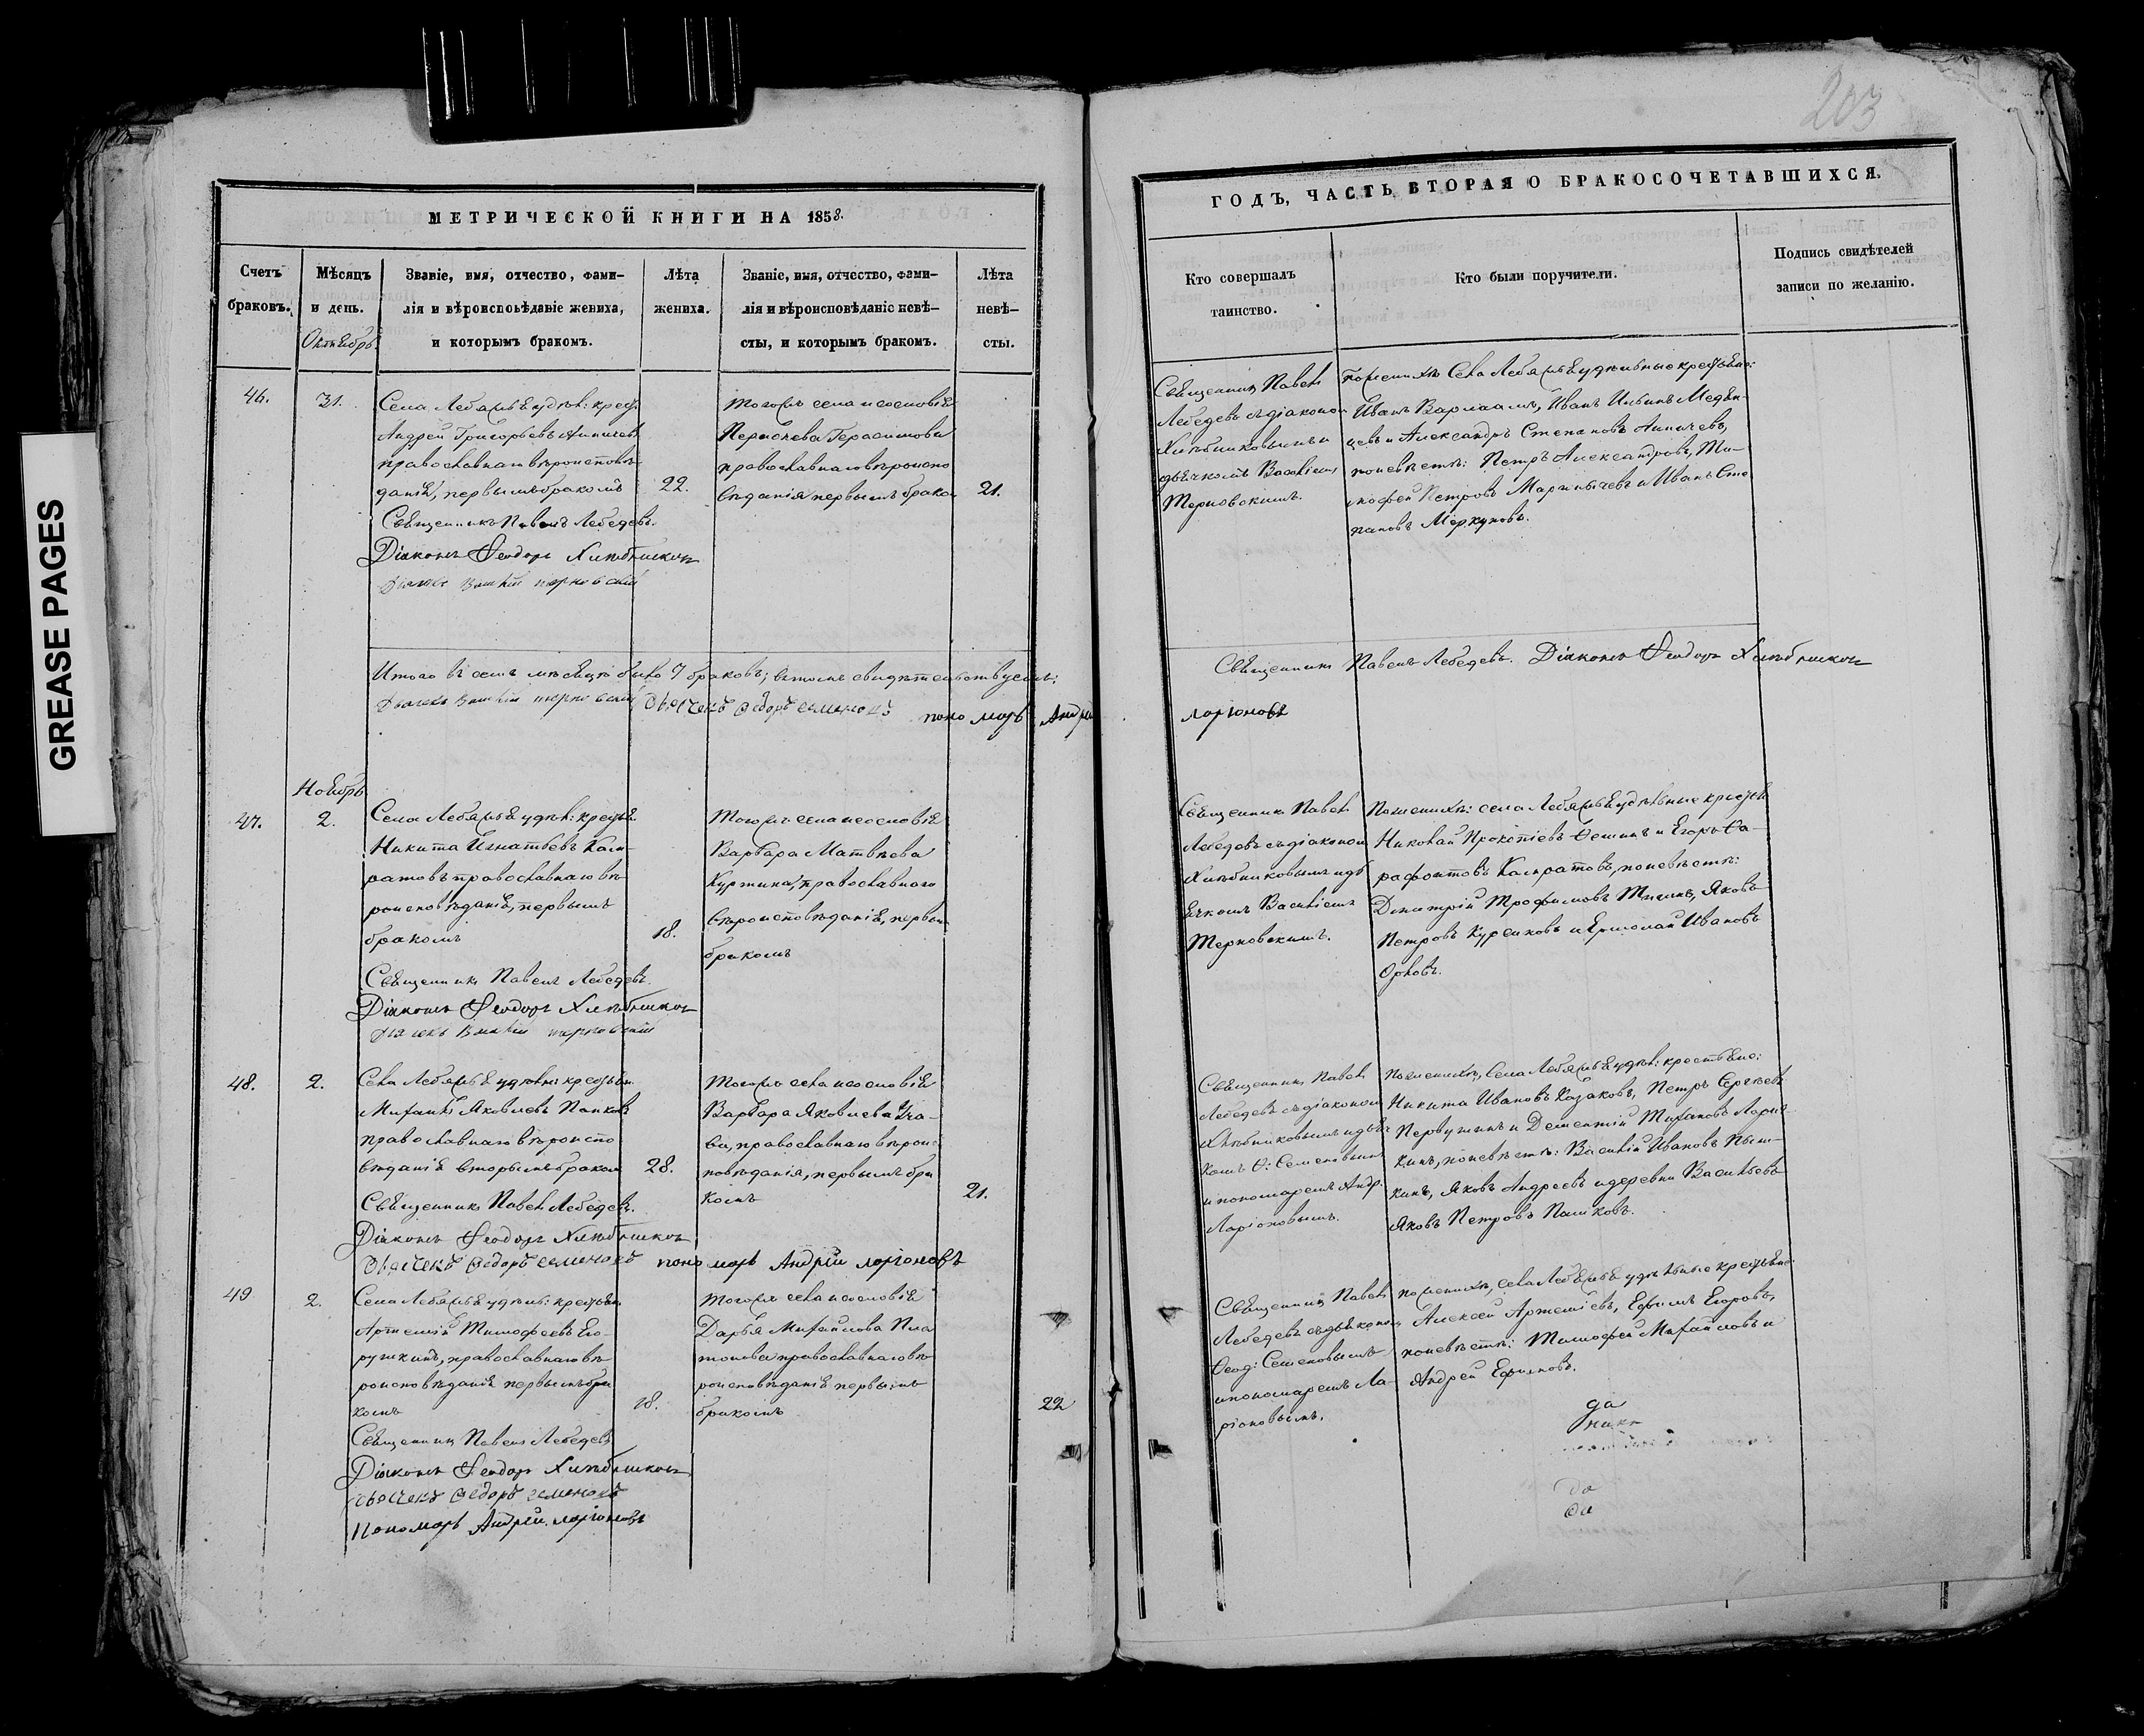 GREASE PAGES
203
МЕТРИЧЕСКОЙ КНИГИ НА 1858.
Счетъ браковъ.
Мѣсяцъ и день.
Октябрь.
Званіе, имя, отчество, фами-
лія и вѣроисповѣданіе жениха,
и которымъ бракомъ.
Лѣта
жениха.
Званіе, имя, отчество, фами-
лія и вѣроисповѣданіе невѣ-
сты, и которымъ бракомъ.
Лѣта
невѣ-
сты.
46.
31.
Села Лебяжья удѣл: крест
Андрей Григорьевъ Аничевъ
православнаго вѣроисповѣ-
данія, первымъ бракомъ
22.
Священникъ Павелъ Лебедевъ.
Діаконъ Ѳеодоръ Хлѣбников
Дьячекъ Василій Терновскій
тогожъ села и сословія
Герасимова
православнаго вѣроиспо
вѣданія первымъ брако
21.
Итого въ семъ мѣсяцѣ было 7 браковъ; въ томъ свидѣтельствуемъ:
Дьячекъ Василій Терновскій Дьячекъ Ѳедоръ Семеновъ пономарь Андрей
Ноябрь
47.
2.
Села Лебяжья удѣл: крестья
Никита Игнатьевъ Кал-
ратовъ православнаго вѣ-
роисповѣданія, первымъ
бракомъ
18.
Священникъ Павелъ Лебедевъ.
Діаконъ Ѳеодоръ Хлѣбников
Дьячекъ Василій Терновскій
тогожъ села и сословія
Варвара Матвѣева
православнаго
вѣроисповѣданія, первым
бракомъ
48.
2.
Села Лебяжья удѣльн: крестьян
Михаилъ Яковлевъ Панковъ
православнаго вѣроиспо
вѣданія вторымъ браком
28.
Священникъ Павелъ Лебедевъ.
Діаконъ Ѳеодоръ Хлѣбников
Дьячекъ Ѳедоръ Семеновъ пономарь Андрей Ларіоновъ
тогожъ села и сословія
Варвара Яковлева
ва, православнаго вѣрои
повѣданія, первымъ бра
комъ
21.
49
2.
Села Лебяжья удѣль: крестьян
Артемій Тимофеевъ Его-
рушкинъ, православнаго вѣ-
роисповѣданія первымъ бра
комъ
18.
Священникъ Павелъ Лебедевъ
Діаконъ Ѳеодоръ Хлѣбников
Дьячекъ Ѳедоръ Семеновъ
Пономарь Андрей Ларіоновъ
тогожъ села и сословія
Дарья Михайлова Пла
тонова православнаго вѣ
роисповѣданія первымъ
бракомъ
22
ГОДЪ, ЧАСТЬ ВТОРАЯ О БРАКОСОЧЕТАВШИХСЯ.
Кто совершалъ
таинство.
Кто были поручители.
Подпись свидѣтелей
записи по желанію.
Священник Павел
Лебедевъ съ діаконом
Хлѣбниковымъ и
дьячкомъ Василіем
Терновскимъ.
по женихѣ Села Лебяжья удѣльные крестьяне:
Иванъ Варлаамъ, Иванъ Ильинъ Медвѣн-
цевъ и Александръ Степановъ Аничевъ,
по невѣстѣ: Петръ Александровъ, Ти-
мофей Петровъ и Иванъ Сте
пановъ Меркуловъ.
Священникъ Павелъ Лебедевъ. Діаконъ Ѳеодоръ Хлѣбников
Ларіоновъ
Священникъ Павел
Лебедевъ съ діаконом
Хлѣбниковымъ и дь
ячкомъ Василіемъ
Терновскимъ.
По женихѣ: села Лебяжья удѣльные крестья
Николай Прокопіевъ Ѳешинъ и Егоръ Ѳа-
рафонтовъ Калратовъ, по невѣстѣ:
Димитрій Трофимовъ Яковъ
Петровъ Курсиковъ и Ермолай Ивановъ
Орловъ.
Священник Павел
Лебедевъ съ діаконом
Хлѣбниковымъ и дьяч
комъ Ѳ: Семеновым
и пономаремъ Андр.
Ларіоновымъ.
по женихѣ, Села Лебяжья удѣл: крестьяне:
Никита Ивановъ Казаковъ, Петръ Сергѣевъ
Первушинъ и Дементій Михаиловъ Лари-
кинъ, по невѣстѣ: Василій Ивановъ
кинъ, Яковъ Андреевъ и деревни Васильевъ
Яковъ Петровъ Пашковъ.
Священник Павел
Лебедевъ съ дьячком
Ѳеод: Семеновымъ
и пономаремъ Ла-
ріоновымъ.
по женихѣ, села Лебяжья удѣльные крестьяне
Алексей Артеміевъ, Ефимъ Егоровъ,
по невѣстѣ: Тимофей Михайловъ и
Андрей Ефимовъ.
да
да
да